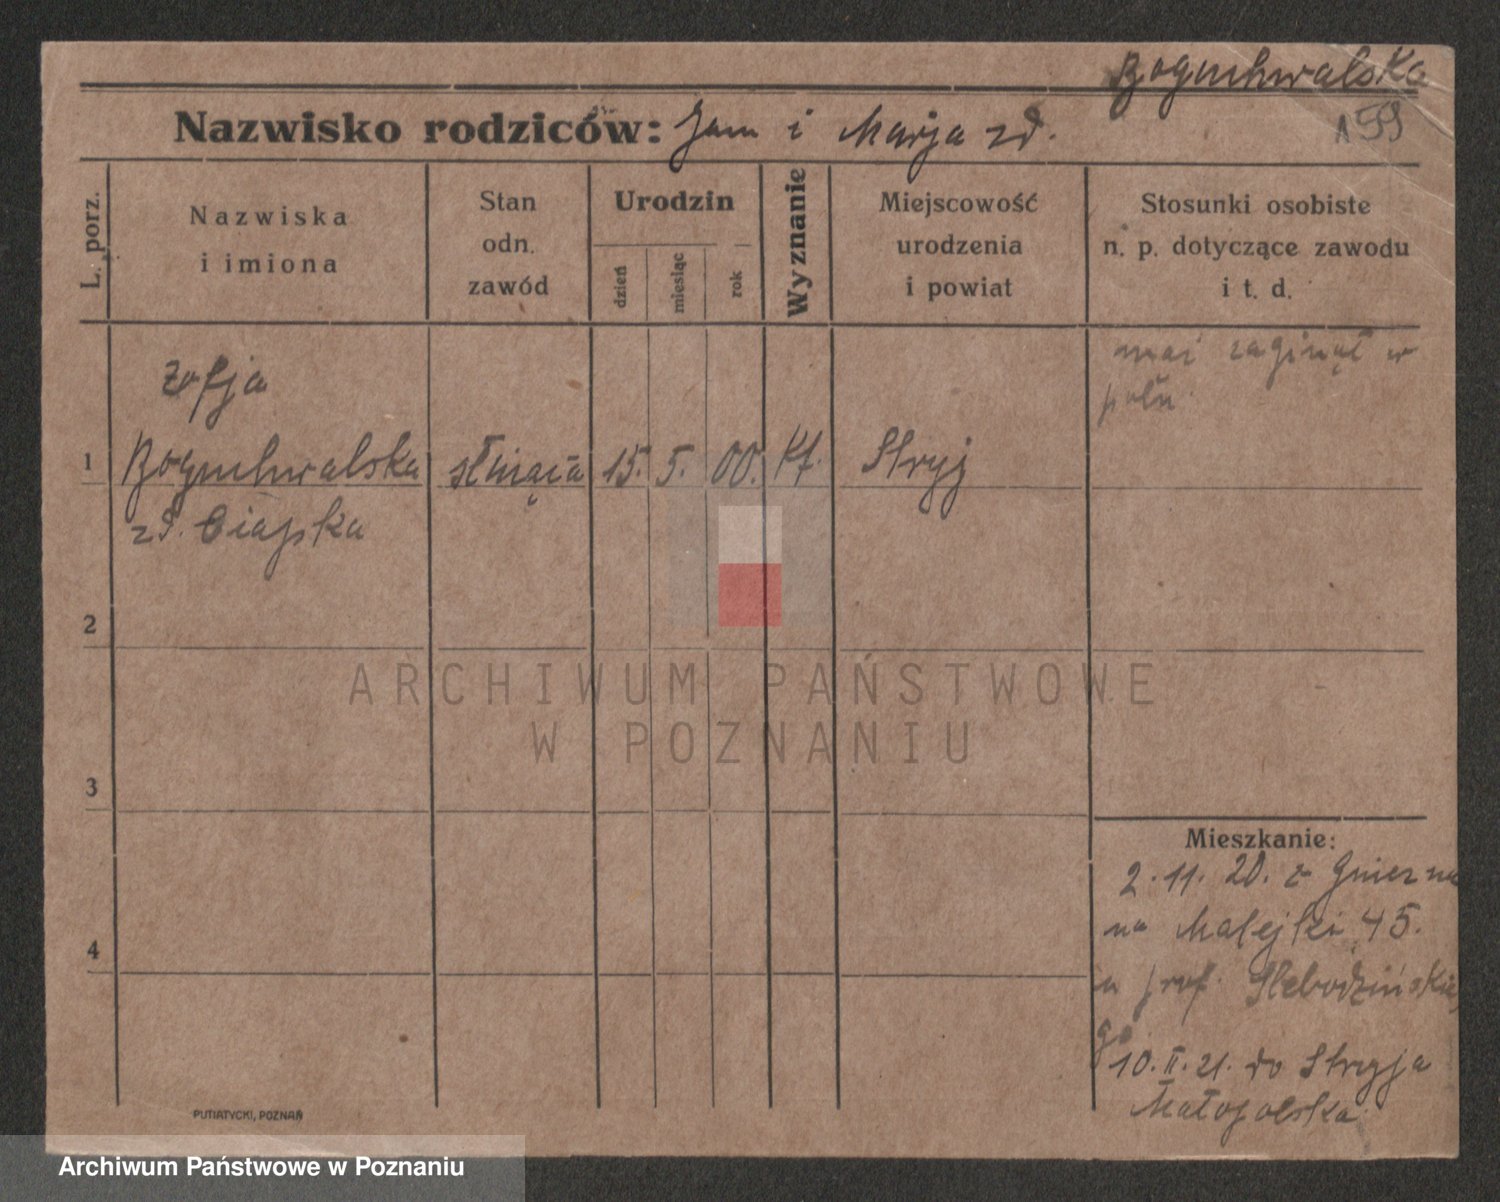 Boguchwalska
Nazwisko rodziców: Jan i Marja zd.
159
L. porz.
Nazwiska
i imiona
Stan
odn.
zawód
Urodzin
dzień
miesiąc
rok
Wyznanie
Miejscowość
urodzenia
i powiat
Stosunki osobiste
n. p. dotyczące zawodu
i t. d.
mąż zaginął w
polu
Zofja
1 Boguchwalska służąca 15. 5. 00. Kt. Stryj
zd. Ciapska
2
ARCHIWUM PAŃSTWOWE
W POZNANIU
3
Mieszkanie:
2.11.20. z Gniezna
na Matejki 45.
4
u prof. Slebodzińskie
go
10.II.21. do Stryja
Małopolska
PUTIATYCKI, POZNAŃ
Archiwum Państwowe w Poznaniu